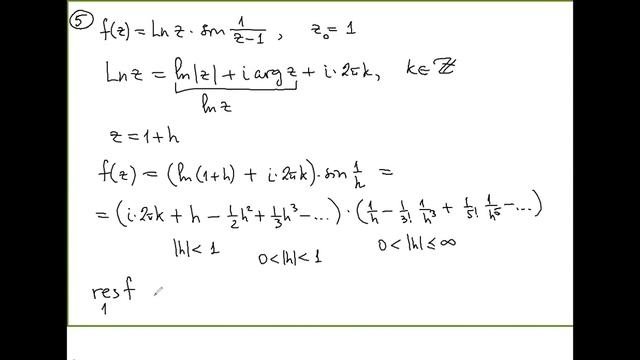 ⑤ f(z) = Ln z · sin 1/(z-1), z₀ = 1
Ln z = ln|z| + i arg z + i·2πk, k∈ℤ
ln z
z = 1+h
f(z) = (ln(1+h) + i·2πk)·sin 1/h =
= (i·2πk + h - 1/2 h² + 1/3 h³ - ...) · (1/h - 1/3! 1/h³ + 1/5! 1/h⁵ - ...)
|h| < 1 0 < |h| < 1 0 < |h| ≤ ∞
res f
1